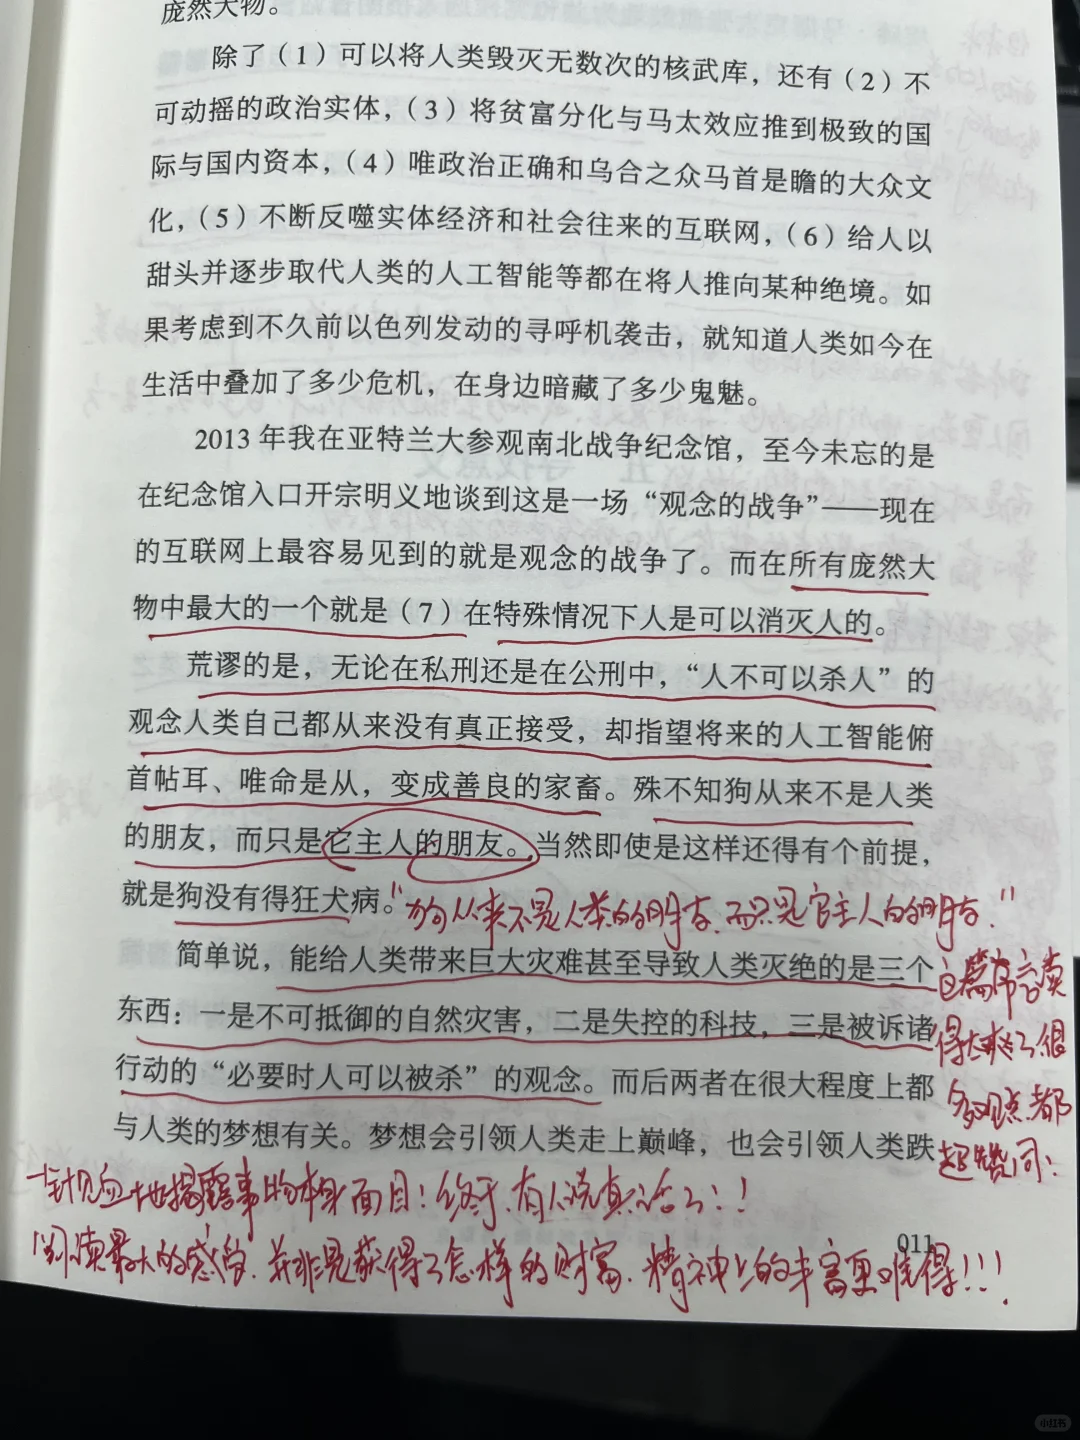 庞然大物。
除了（1）可以将人类毁灭无数次的核武库，还有（2）不
可动摇的政治实体，（3）将贫富分化与马太效应推到极致的国
际与国内资本，（4）唯政治正确和乌合之众马首是瞻的大众文
化，（5）不断反噬实体经济和社会往来的互联网，（6）给人以
甜头并逐步取代人类的人工智能等都在将人推向某种绝境。如
果考虑到不久前以色列发动的寻呼机袭击，就知道人类如今在
生活中叠加了多少危机，在身边暗藏了多少鬼魅。
2013 年我在亚特兰大参观南北战争纪念馆，至今未忘的是
在纪念馆入口开宗明义地谈到这是一场“观念的战争”——现在
的互联网上最容易见到的就是观念的战争了。而在所有庞然大
物中最大的一个就是（7）在特殊情况下人是可以消灭人的。
荒谬的是，无论在私刑还是在公刑中，“人不可以杀人”的
观念人类自己都从来没有真正接受，却指望将来的人工智能俯
首帖耳、唯命是从，变成善良的家畜。殊不知狗从来不是人类
的朋友，而只是它主人的朋友。当然即使是这样还得有个前提，
就是狗没有得狂犬病。
“狗从来不是人类的朋友，而只是它主人的朋友.”
简单说，能给人类带来巨大灾难甚至导致人类灭绝的是三个
东西：一是不可抵御的自然灾害，二是失控的科技，三是被诉诸
行动的“必要时人可以被杀”的观念。而后两者在很大程度上都
与人类的梦想有关。梦想会引领人类走上巅峰，也会引领人类跌
这篇序言读
得太爽了很
多观点都
超赞同！
一针见血地揭露事物本身面目！终于，有人说真话了！！
阅读最大的感受，并非是获得了怎样的财富，精神上的丰富更难得！！！
011
小红书